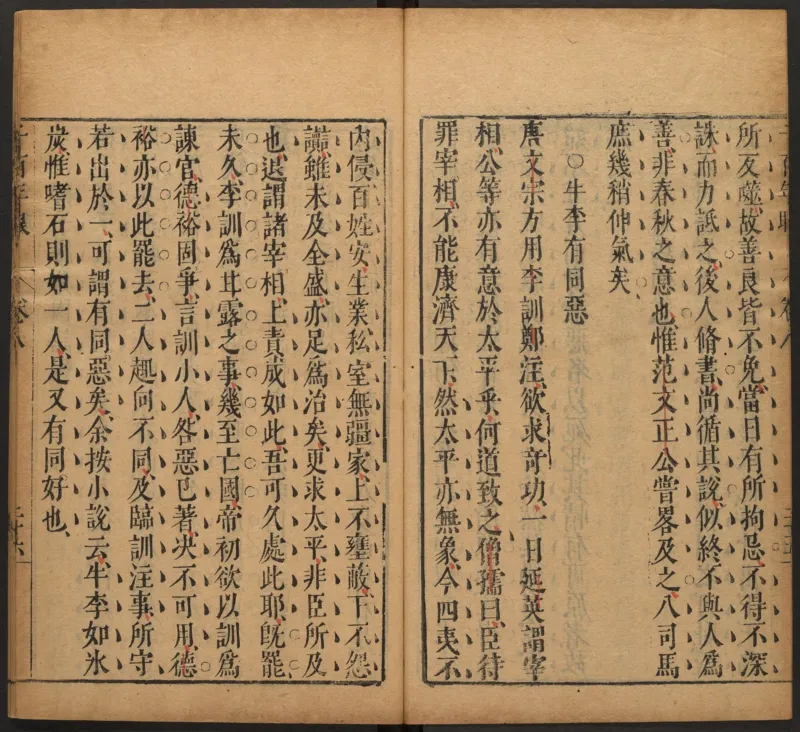 所友噬故善良皆不免當日有所拘忌不得不深
誅而力詆之後人脩書尚循其說似終不與人為
善非春秋之意也惟范文正公嘗畧及之八司馬
庶幾稍伸氣矣
○牛李有同惡
唐文宗方用李訓鄭注欲求竒功一日延英謂宰
相公等亦有意於太平乎何道致之僧孺曰臣待
罪宰相不能康濟天下然太平亦無象今四夷不
內侵百姓安生業私室無疆家上不壅蔽下不怨
讟雖未及全盛亦足爲治矣更求太平非臣所及
也退謂諸宰相上責成如此吾可久處此耶旣罷
未久李訓爲甘露之事幾至亡國帝初欲以訓爲
諫官德裕固爭言訓小人咎惡已著决不可用德
裕亦以此罷去二人趣向不同及臨訓注事所守
若出於一可謂有同惡矣余按小說云牛李如氷
炭惟嗜石則如一人是又有同好也
卷八
二十六